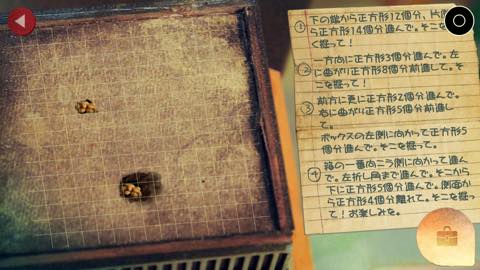 ① 下の端から正方形12個分、片側か
ら正方形14個分進んで。そこを
く掘って!
② 一方向に正方形3個分進んで。左
に曲がり正方形8個分前進して。そ
こを掘って!
③ 前方に更に正方形2個分進んで。
右に曲がり正方形5個分前進し
て。
ボックスの左側に向かって正方形5
個分進んで。そこを掘って。
④ 箱の一番向こう側に向かって進ん
で。左折し角まで進んで。そこから
下に正方形5個分進んで。側面か
ら正方形4個分離れて。そこを掘っ
て!お楽しみな。